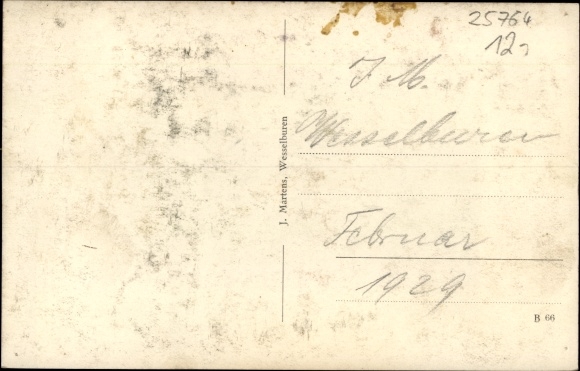 25764
12,
J. M.
Wesselburen
Februar
1929
J. Martens, Wesselburen
B 66